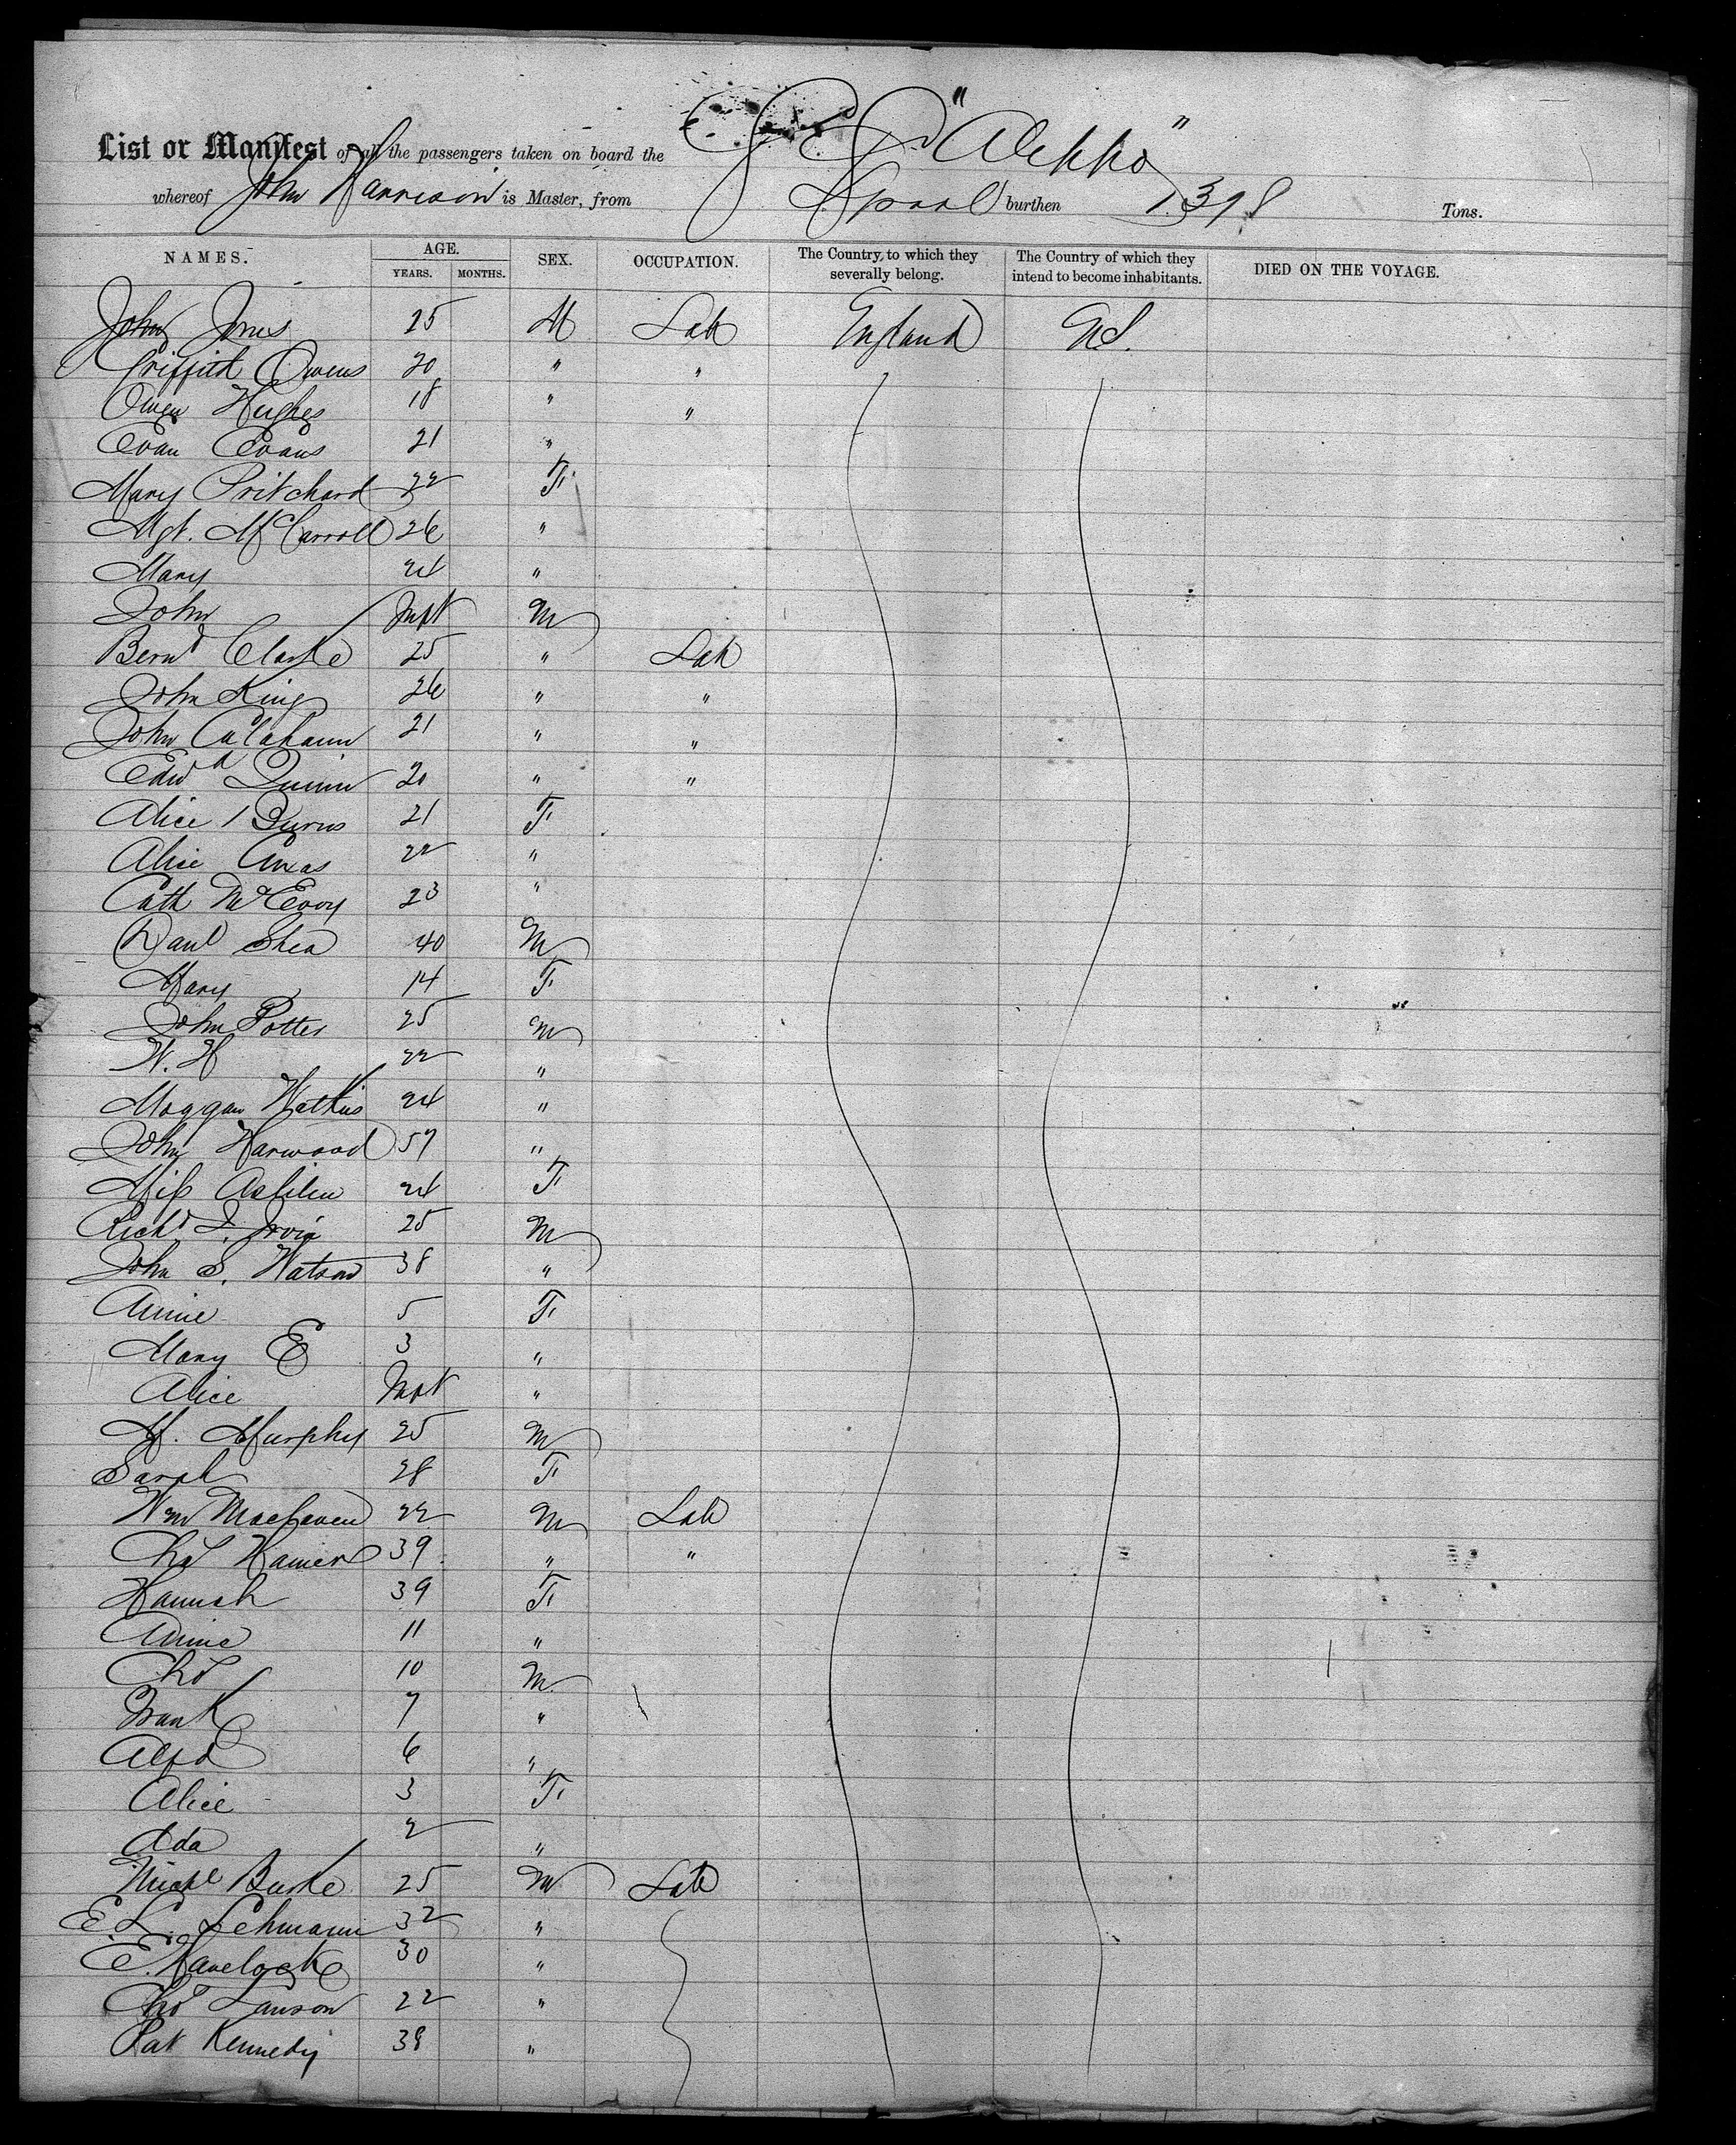 List or Manifest of all the passengers taken on board the S.S. "Aleppo"
whereof John Harrison is Master, from Lpool burthen 1398 Tons.
NAMES. AGE. SEX. OCCUPATION. The Country, to which they severally belong. The Country of which they intend to become inhabitants. DIED ON THE VOYAGE.
YEARS. MONTHS.
John Jones 25 M Lab England U.S.
Griffith Owens 20 " "
Owen Hughes 18 " "
Evan Evans 21 "
Mary Pritchard 22 F
Mgt. McCarroll 26 "
Mary 24 "
John Inft M
Bernd Clarke 25 " Lab
John King 26 " "
John Calahann 21 " "
Edwd Quinn 20 " "
Alice Burns 21 F
Alice 22 "
Cath McEvoy 23 "
Danl Shea 40 M
Mary 14 F
John Potter 25 M
W. H 22 "
Moggan Watkins 24 "
John Harwood 57 "
Miss 24 F
Richd J. Irvin 25 M
John S. Watson 38 "
Annie 5 F
Mary E 3 "
Alice Inft "
M. Murphy 25 M
Sarah 28 F
Wm 22 M Lab
Chs Hamer 39 " "
Hannah 39 F
Annie 11 "
Chs 10 M
Frank 7 "
Alfd 6 "
Alice 3 F
Ada 2 "
Michl Burke 25 M Lab
E. L. Lehmann 32 "
E. Havelock 30 "
Chs Lawson 22 "
Pat Kennedy 38 "